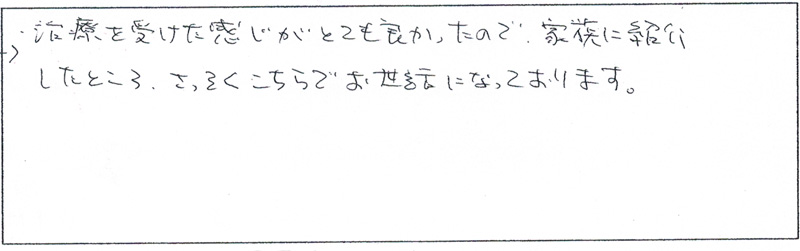 治療を受けた感じがとても良かったので、家族に紹介
したところ、さっそくこちらでお世話になっております。